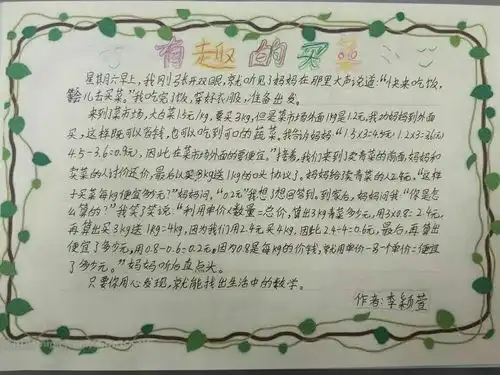 有趣的买菜
星期六早上,我刚张开双眼,就听见了妈妈在那里大声说道:“快来吃饭,
儿去买菜。”我吃完了饭,穿好衣服,准备出发。
来到了菜市场,大白菜1.5元/kg,要买3kg,但是菜市场外面1kg是1.2元,我劝妈妈到外面
买,这样既可以省钱,也可以吃到可口的蔬菜。我告诉妈妈:“1.5×3=4.5元 1.2×3=3.6元
4.5-3.6=0.9元,因此在菜市场外面的要便宜。”接着,我们来到了卖青菜的商面,妈妈和
卖菜的人讨价还价,最后以买3kg送1kg的口头协议了。妈妈给卖青菜的人2.4元。“这样
子买菜每kg便宜多少元?”妈妈问。“0.2元”我想了想回答到。到家后,妈妈问我:“你是怎
么算的?”我笑了笑说:“利用单价×数量=总价,算出3kg青菜多少元,用3×0.8=2.4元,
再算出买3kg送1kg=4kg,因为我们用2.4元买4kg,因此2.4÷4=0.6元,最后,再算出
便宜了多少元,用0.8-0.6=0.2元,因为0.8是每kg的价钱,就用单价-另一个单价=便宜
了多少元。”妈妈听后直点头。
只要你用心发现,就能找出生活中的数学。
作者:李颖萱